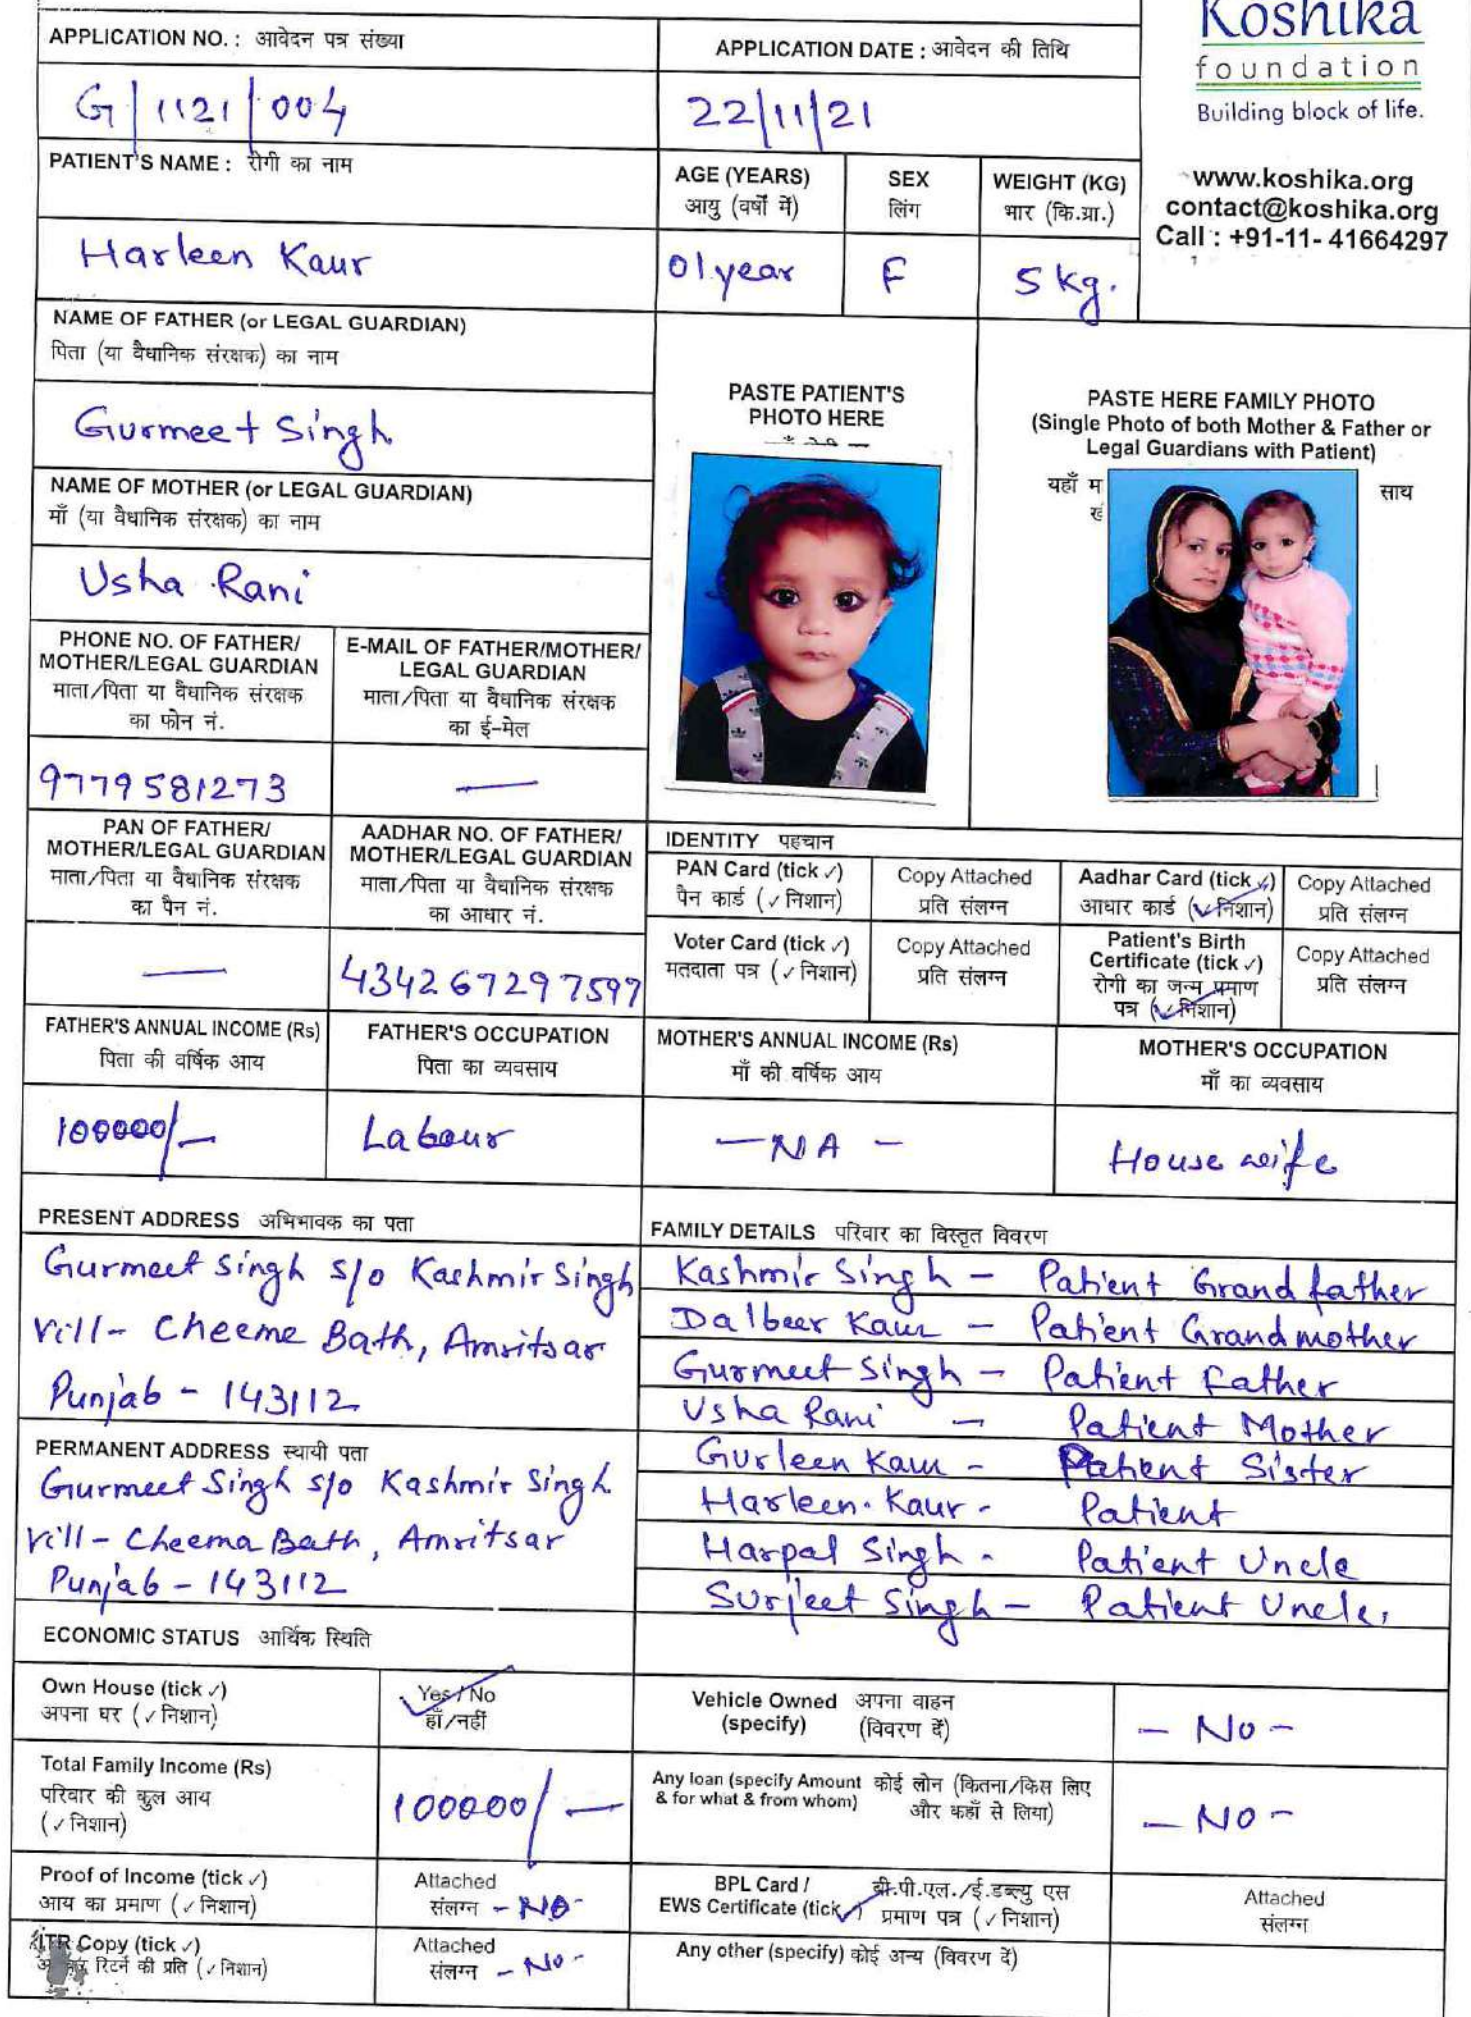 Koshika
foundation
Building block of life.
www.koshika.org
contact@koshika.org
Call : +91-11- 41664297
APPLICATION NO. : आवेदन पत्र संख्या
APPLICATION DATE : आवेदन की तिथि
G/1121/004
22/11/21
PATIENT'S NAME : रोगी का नाम
AGE (YEARS)
आयु (वर्षों में)
SEX
लिंग
WEIGHT (KG)
भार (कि.ग्रा.)
Harleen Kaur
01 year
F
5 kg.
NAME OF FATHER (or LEGAL GUARDIAN)
पिता (या वैधानिक संरक्षक) का नाम
Gurmeet Singh
NAME OF MOTHER (or LEGAL GUARDIAN)
माँ (या वैधानिक संरक्षक) का नाम
Usha Rani
PASTE PATIENT'S
PHOTO HERE
PASTE HERE FAMILY PHOTO
(Single Photo of both Mother & Father or
Legal Guardians with Patient)
यहाँ
साथ
PHONE NO. OF FATHER/
MOTHER/LEGAL GUARDIAN
माता/पिता या वैधानिक संरक्षक
का फोन नं.
E-MAIL OF FATHER/MOTHER/
LEGAL GUARDIAN
माता/पिता या वैधानिक संरक्षक
का ई-मेल
9779581273
—
PAN OF FATHER/
MOTHER/LEGAL GUARDIAN
माता/पिता या वैधानिक संरक्षक
का पैन नं.
AADHAR NO. OF FATHER/
MOTHER/LEGAL GUARDIAN
माता/पिता या वैधानिक संरक्षक
का आधार नं.
—
434267297597
IDENTITY पहचान
PAN Card (tick ✓)
पैन कार्ड (✓ निशान)
Copy Attached
प्रति संलग्न
Aadhar Card (tick ✓)
आधार कार्ड (✓ निशान)
Copy Attached
प्रति संलग्न
Voter Card (tick ✓)
मतदाता पत्र (✓ निशान)
Copy Attached
प्रति संलग्न
Patient's Birth
Certificate (tick ✓)
रोगी का जन्म प्रमाण
पत्र (✓ निशान)
Copy Attached
प्रति संलग्न
FATHER'S ANNUAL INCOME (Rs)
पिता की वर्षिक आय
FATHER'S OCCUPATION
पिता का व्यवसाय
MOTHER'S ANNUAL INCOME (Rs)
माँ की वर्षिक आय
MOTHER'S OCCUPATION
माँ का व्यवसाय
100000/—
Labour
— NA —
House wife
PRESENT ADDRESS अभिभावक का पता
Gurmeet Singh s/o Kashmir Singh
Vill- Cheeme Bath, Amritsar
Punjab - 143112
PERMANENT ADDRESS स्थायी पता
Gurmeet Singh s/o Kashmir Singh
Vill- Cheema Bath, Amritsar
Punjab - 143112
FAMILY DETAILS परिवार का विस्तृत विवरण
Kashmir Singh - Patient Grandfather
Dalbeer Kaur - Patient Grandmother
Gurmeet Singh - Patient Father
Usha Rani - Patient Mother
Gurleen Kaur - Patient Sister
Harleen Kaur - Patient
Harpal Singh - Patient Uncle
Surjeet Singh - Patient Uncle.
ECONOMIC STATUS आर्थिक स्थिति
Own House (tick ✓)
अपना घर (✓ निशान)
Yes / No
हाँ/नहीं
Vehicle Owned अपना वाहन
(specify) (विवरण दें)
- No -
Total Family Income (Rs)
परिवार की कुल आय
(✓ निशान)
100000/—
Any loan (specify Amount कोई लोन (कितना/किस लिए
& for what & from whom) और कहाँ से लिया)
- NO -
Proof of Income (tick ✓)
आय का प्रमाण (✓ निशान)
Attached
संलग्न - NO -
BPL Card / बी.पी.एल./ई.डब्ल्यु एस
EWS Certificate (tick ✓) प्रमाण पत्र (✓ निशान)
Attached
संलग्न
ITR Copy (tick ✓)
रिटर्न की प्रति (✓ निशान)
Attached
संलग्न - No -
Any other (specify) कोई अन्य (विवरण दें)